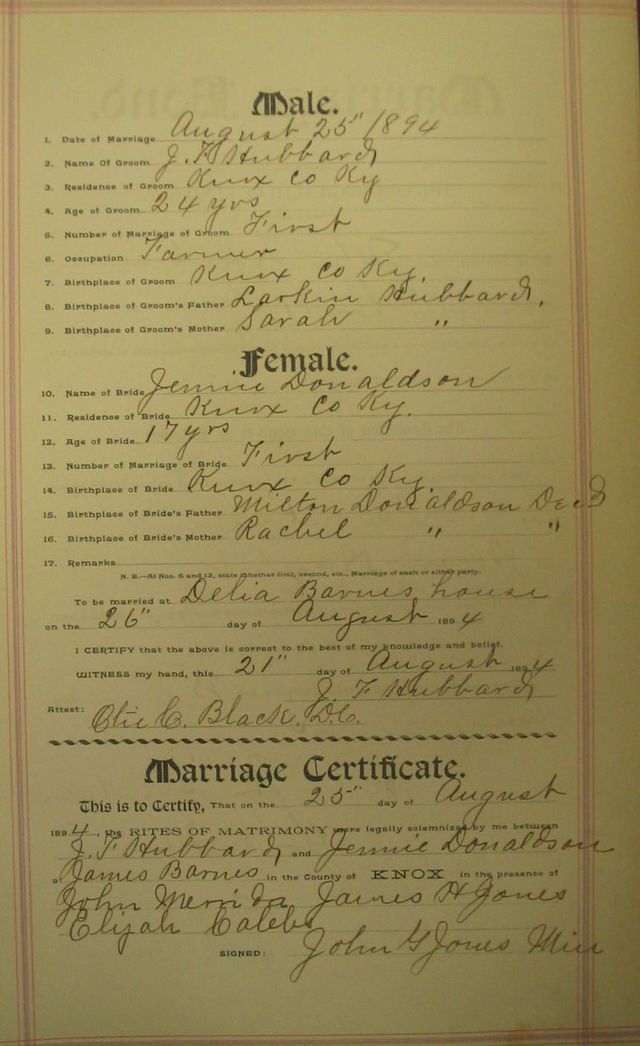 Male.
1. Date of Marriage August 25" 1894
2. Name Of Groom J. F. Hubbard
3. Residence of Groom Knox Co Ky
4. Age of Groom 24 yrs
5. Number of Marriage of Groom First
6. Occupation Farmer
7. Birthplace of Groom Knox Co Ky.
8. Birthplace of Groom's Father Larkin Hubbard,
9. Birthplace of Groom's Mother Sarah "
Female.
10. Name of Bride Jennie Donaldson
11. Residence of Bride Knox Co Ky.
12. Age of Bride 17 yrs
13. Number of Marriage of Bride First
14. Birthplace of Bride Knox Co Ky.
15. Birthplace of Bride's Father Milton Donaldson Decd
16. Birthplace of Bride's Mother Rachel " "
17. Remarks
N. B.—At Nos. 5 and 13, state whether first, second, etc., Marriage of each or either party.
To be married at Delia Barnes house
on the 26" day of August 1894
I CERTIFY that the above is correct to the best of my knowledge and belief.
WITNESS my hand, this 21" day of August 1894
J. F Hubbard
Attest: C. Black, D.C.
Marriage Certificate.
This is to Certify, That on the 25" day of August
1894, the RITES OF MATRIMONY were legally solemnized by me between
J. F Hubbard and Jennie Donaldson
at James Barnes in the County of KNOX in the presence of
John James H Jones
Elijah Calebs
SIGNED: John G Jones Min